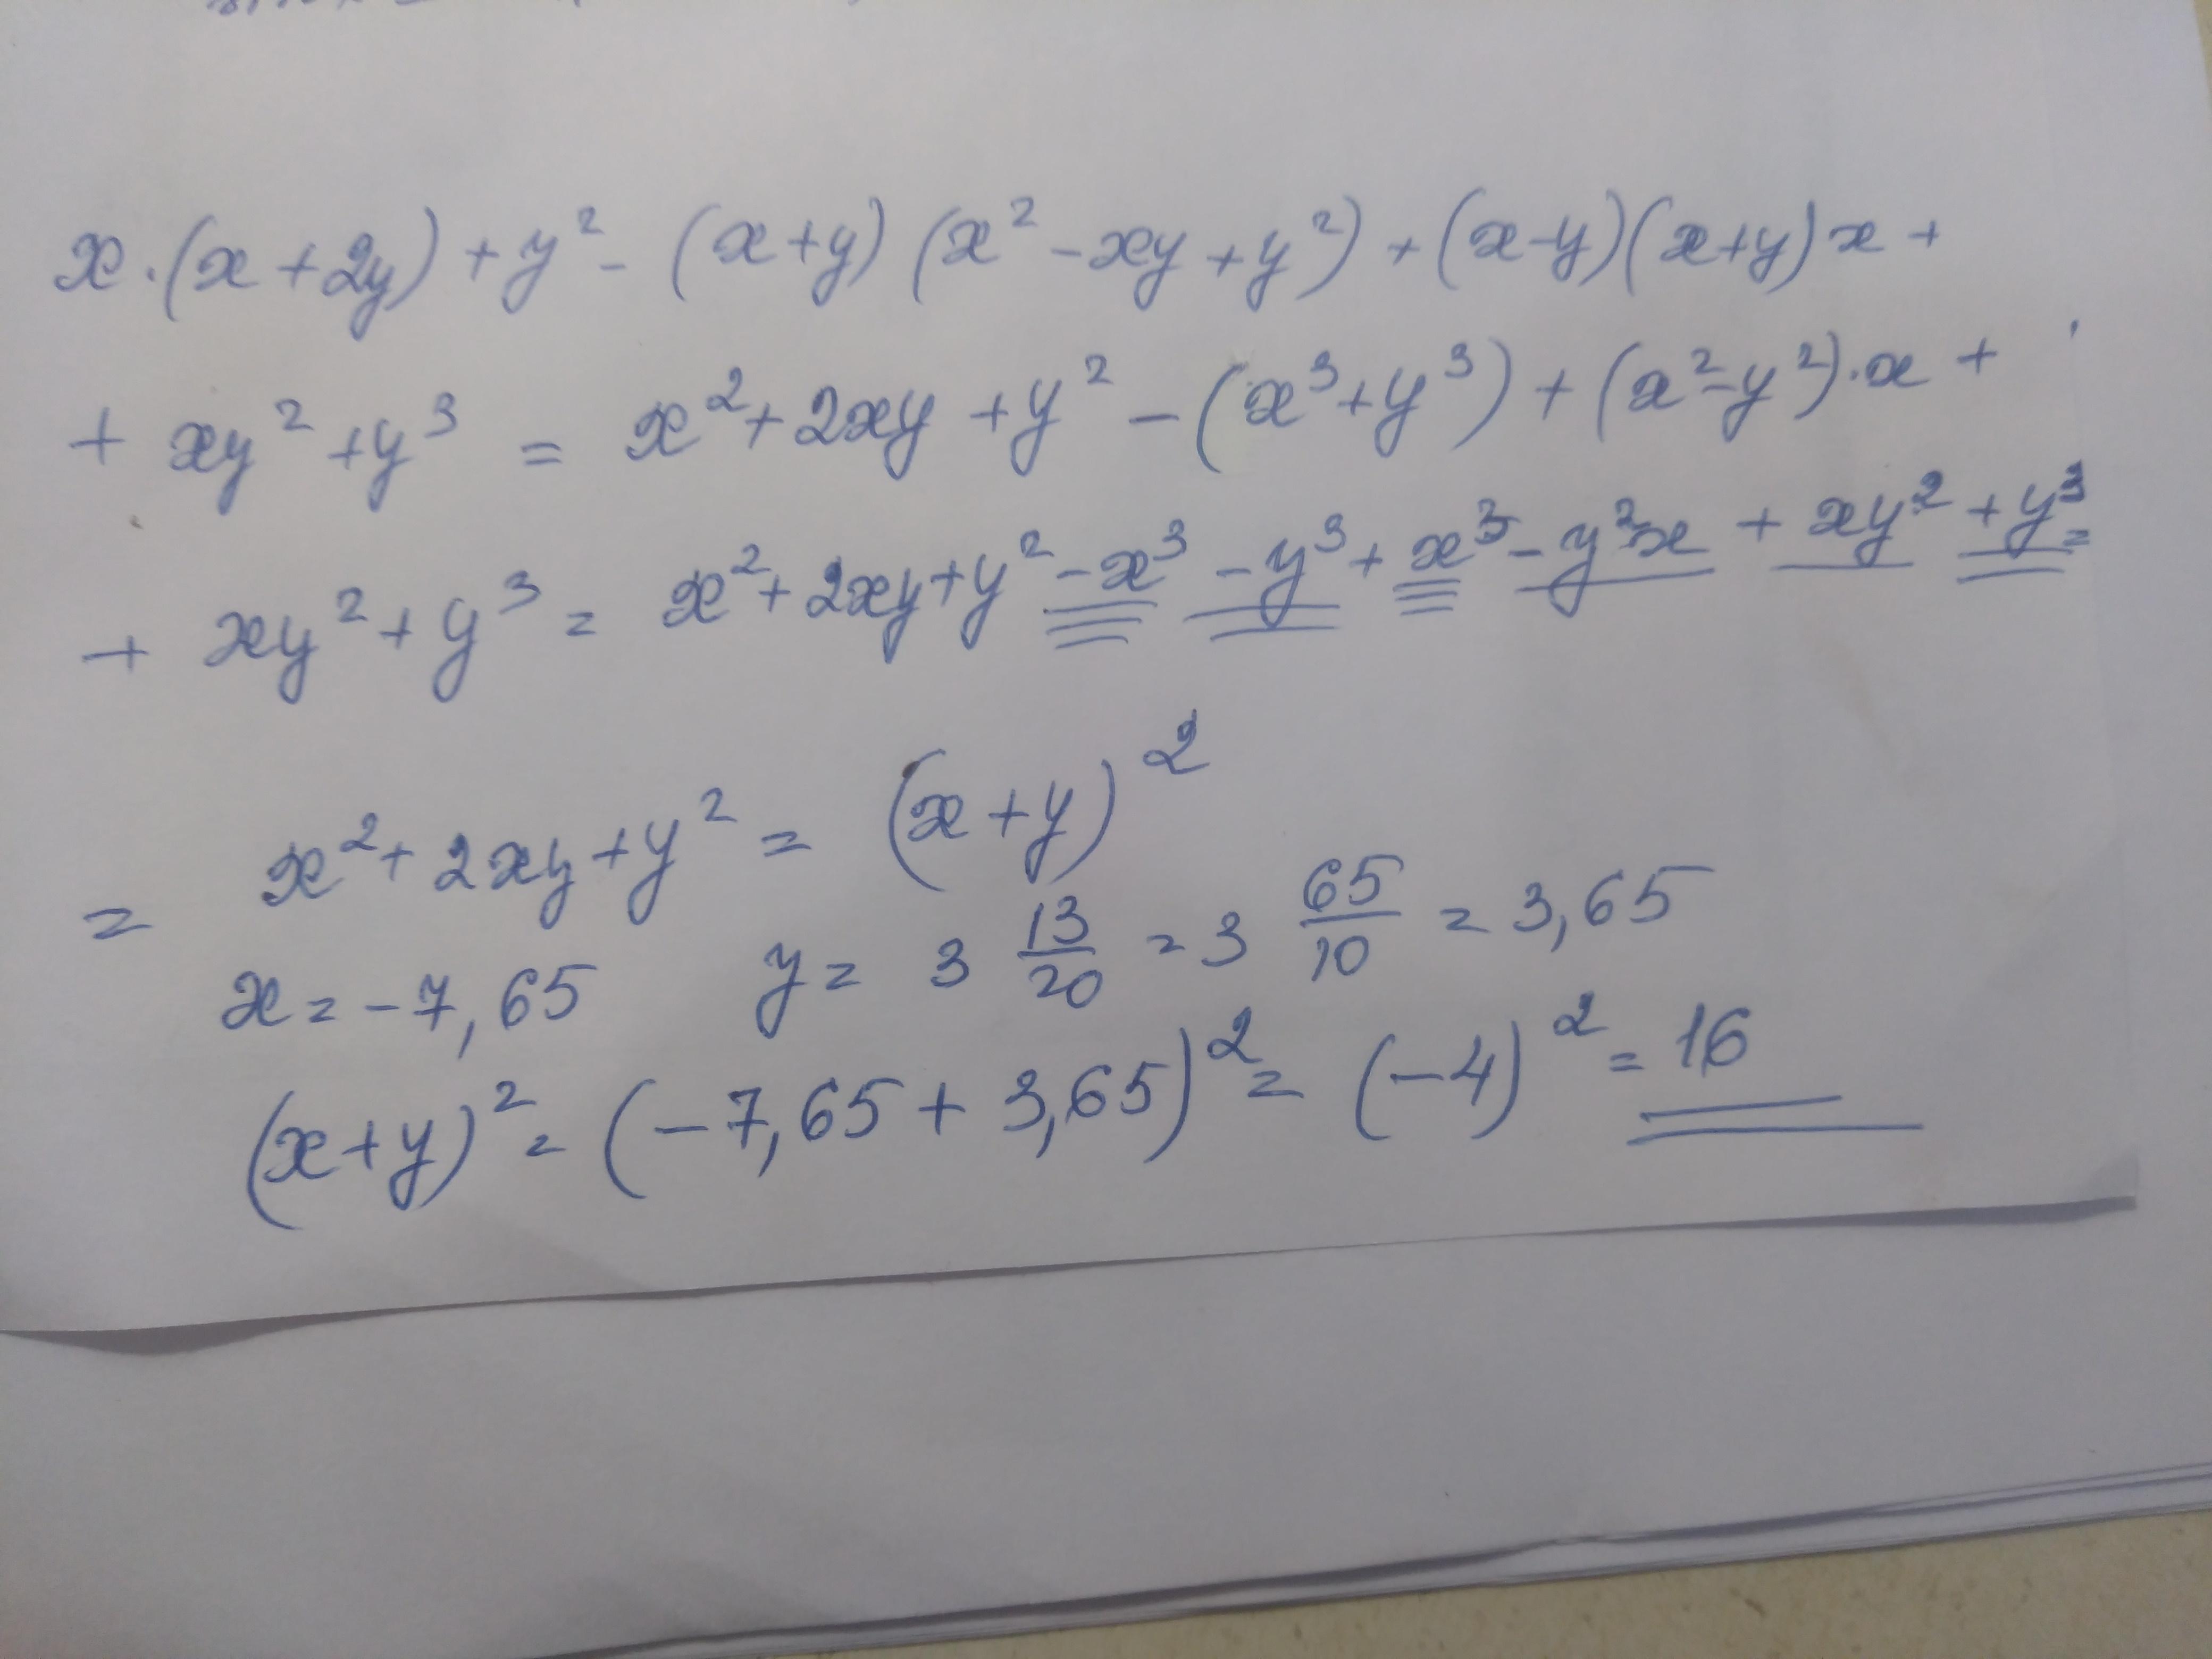 x·(x+2y)+y²-(x+y)(x²-xy+y²)+(x-y)(x+y)x+
+xy²+y³=x²+2xy+y²-(x³+y³)+(x²-y²)·x+
+xy²+y³=x²+2xy+y²-x³-y³+x³-y²x+xy²+y³=
=x²+2xy+y²=(x+y)²
x=-7,65 y=3 13/20=3 65/10=3,65
(x+y)²=(-7,65+3,65)²=(-4)²=16